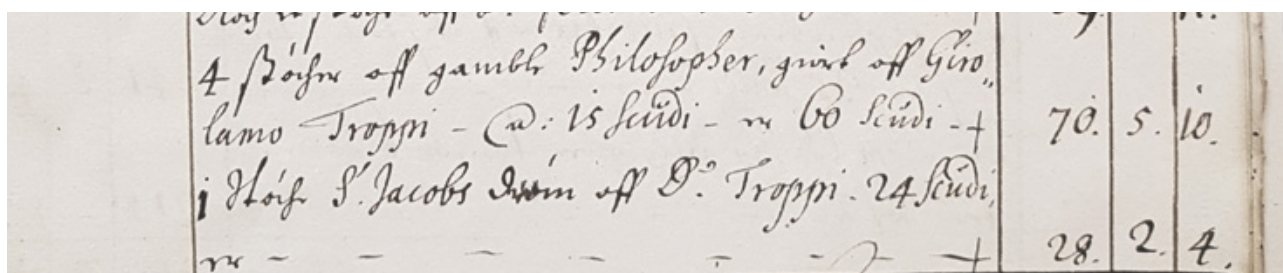 4 støcher aff gamble Philosopher, giort aff Giro„
lamo Troppi - @: 15 scudi - er 60 scudi - + 70. 5. 10.
1 støche S. Jacobs drøm aff D.º Troppi. 24 scudi,
er - - - - - + 28. 2. 4.